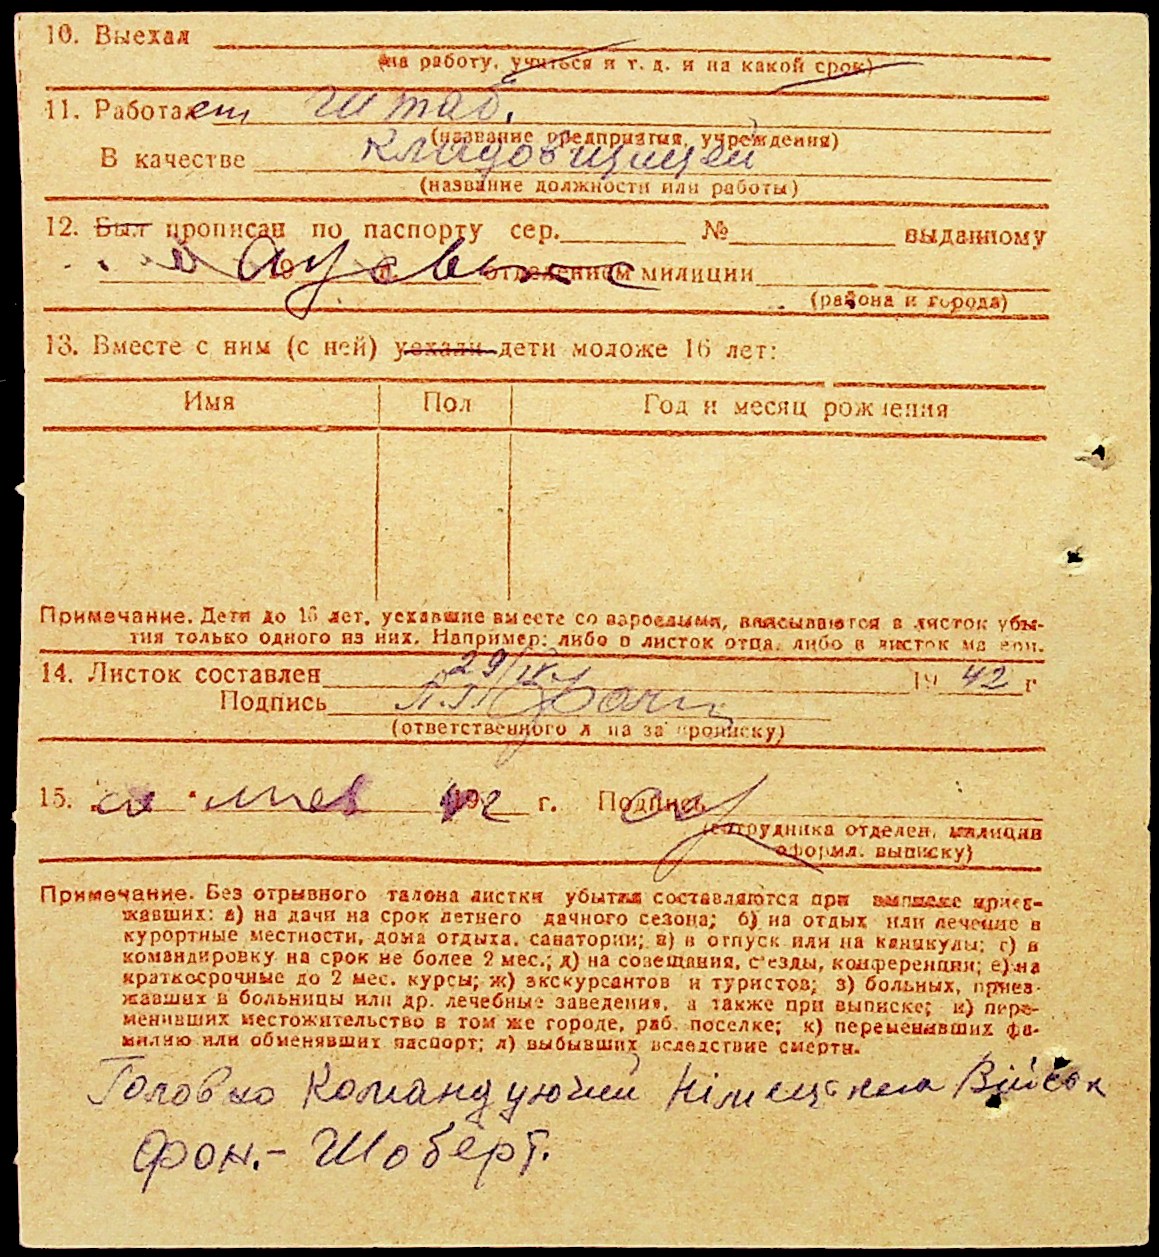 10. Выехал
(на работу, учиться и т. д. и на какой срок)
11. Работает штаб.
(название предприятия, учреждения)
В качестве кладовщицей
(название должности или работы)
12. Был прописан по паспорту сер. № выданному
19 г. отделением милиции
(района и города)
13. Вместе с ним (с ней) уехали дети моложе 16 лет:
Имя Пол Год и месяц рождения
Примечание. Дети до 16 лет, уехавшие вместе со взрослыми, вписываются в листок убы-
тия только одного из них. Например: либо в листок отца, либо в листок матери.
14. Листок составлен 29/IX 1942 г
Подпись
(ответственного лица за прописку)
15. 192 г. Подпись
(сотрудника отделен. милиции
оформл. выписку)
Примечание. Без отрывного талона листки убытия составляются при выписке приез-
жавших: а) на дачи на срок летнего дачного сезона; б) на отдых или лечение в
курортные местности, дома отдыха, санатории; в) в отпуск или на каникулы; г) в
командировку на срок не более 2 мес.; д) на совещания, с'езды, конференции; е) на
краткосрочные до 2 мес. курсы; ж) экскурсантов и туристов; з) больных, приез-
жавших в больницы или др. лечебные заведения, а также при выписке; и) пере-
менивших местожительство в том же городе, раб. поселке; к) переменивших фа-
милию или обменявших паспорт; л) выбывших вследствие смерти.
Головно Командуючий Німецьких Військ
фон.- Шоберт.